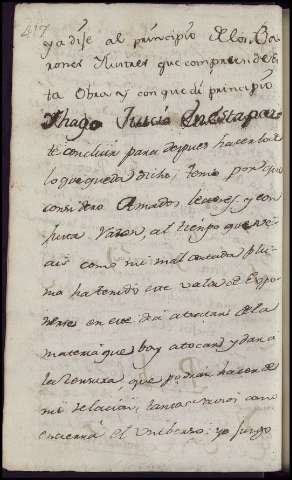 417
ya dije al principio de los Ba
rones Ilustres que comprende es
ta Obra, y con que di principio
Y hago Juicio En esta par
te concluir para despues hacer lo de
lo que queda dicho; temo porque
considero Amados lectores, y con
justa razon, al tiempo que ve
ais como mi mal cortada plu
ma ha tenido ese valor de Expo
nerse en este dia a tratar de la
materia que boy a tocar, y dar a
la censura que podran hacer de
mi relacion, tantos como
encierra el Universo: yo Juzgo